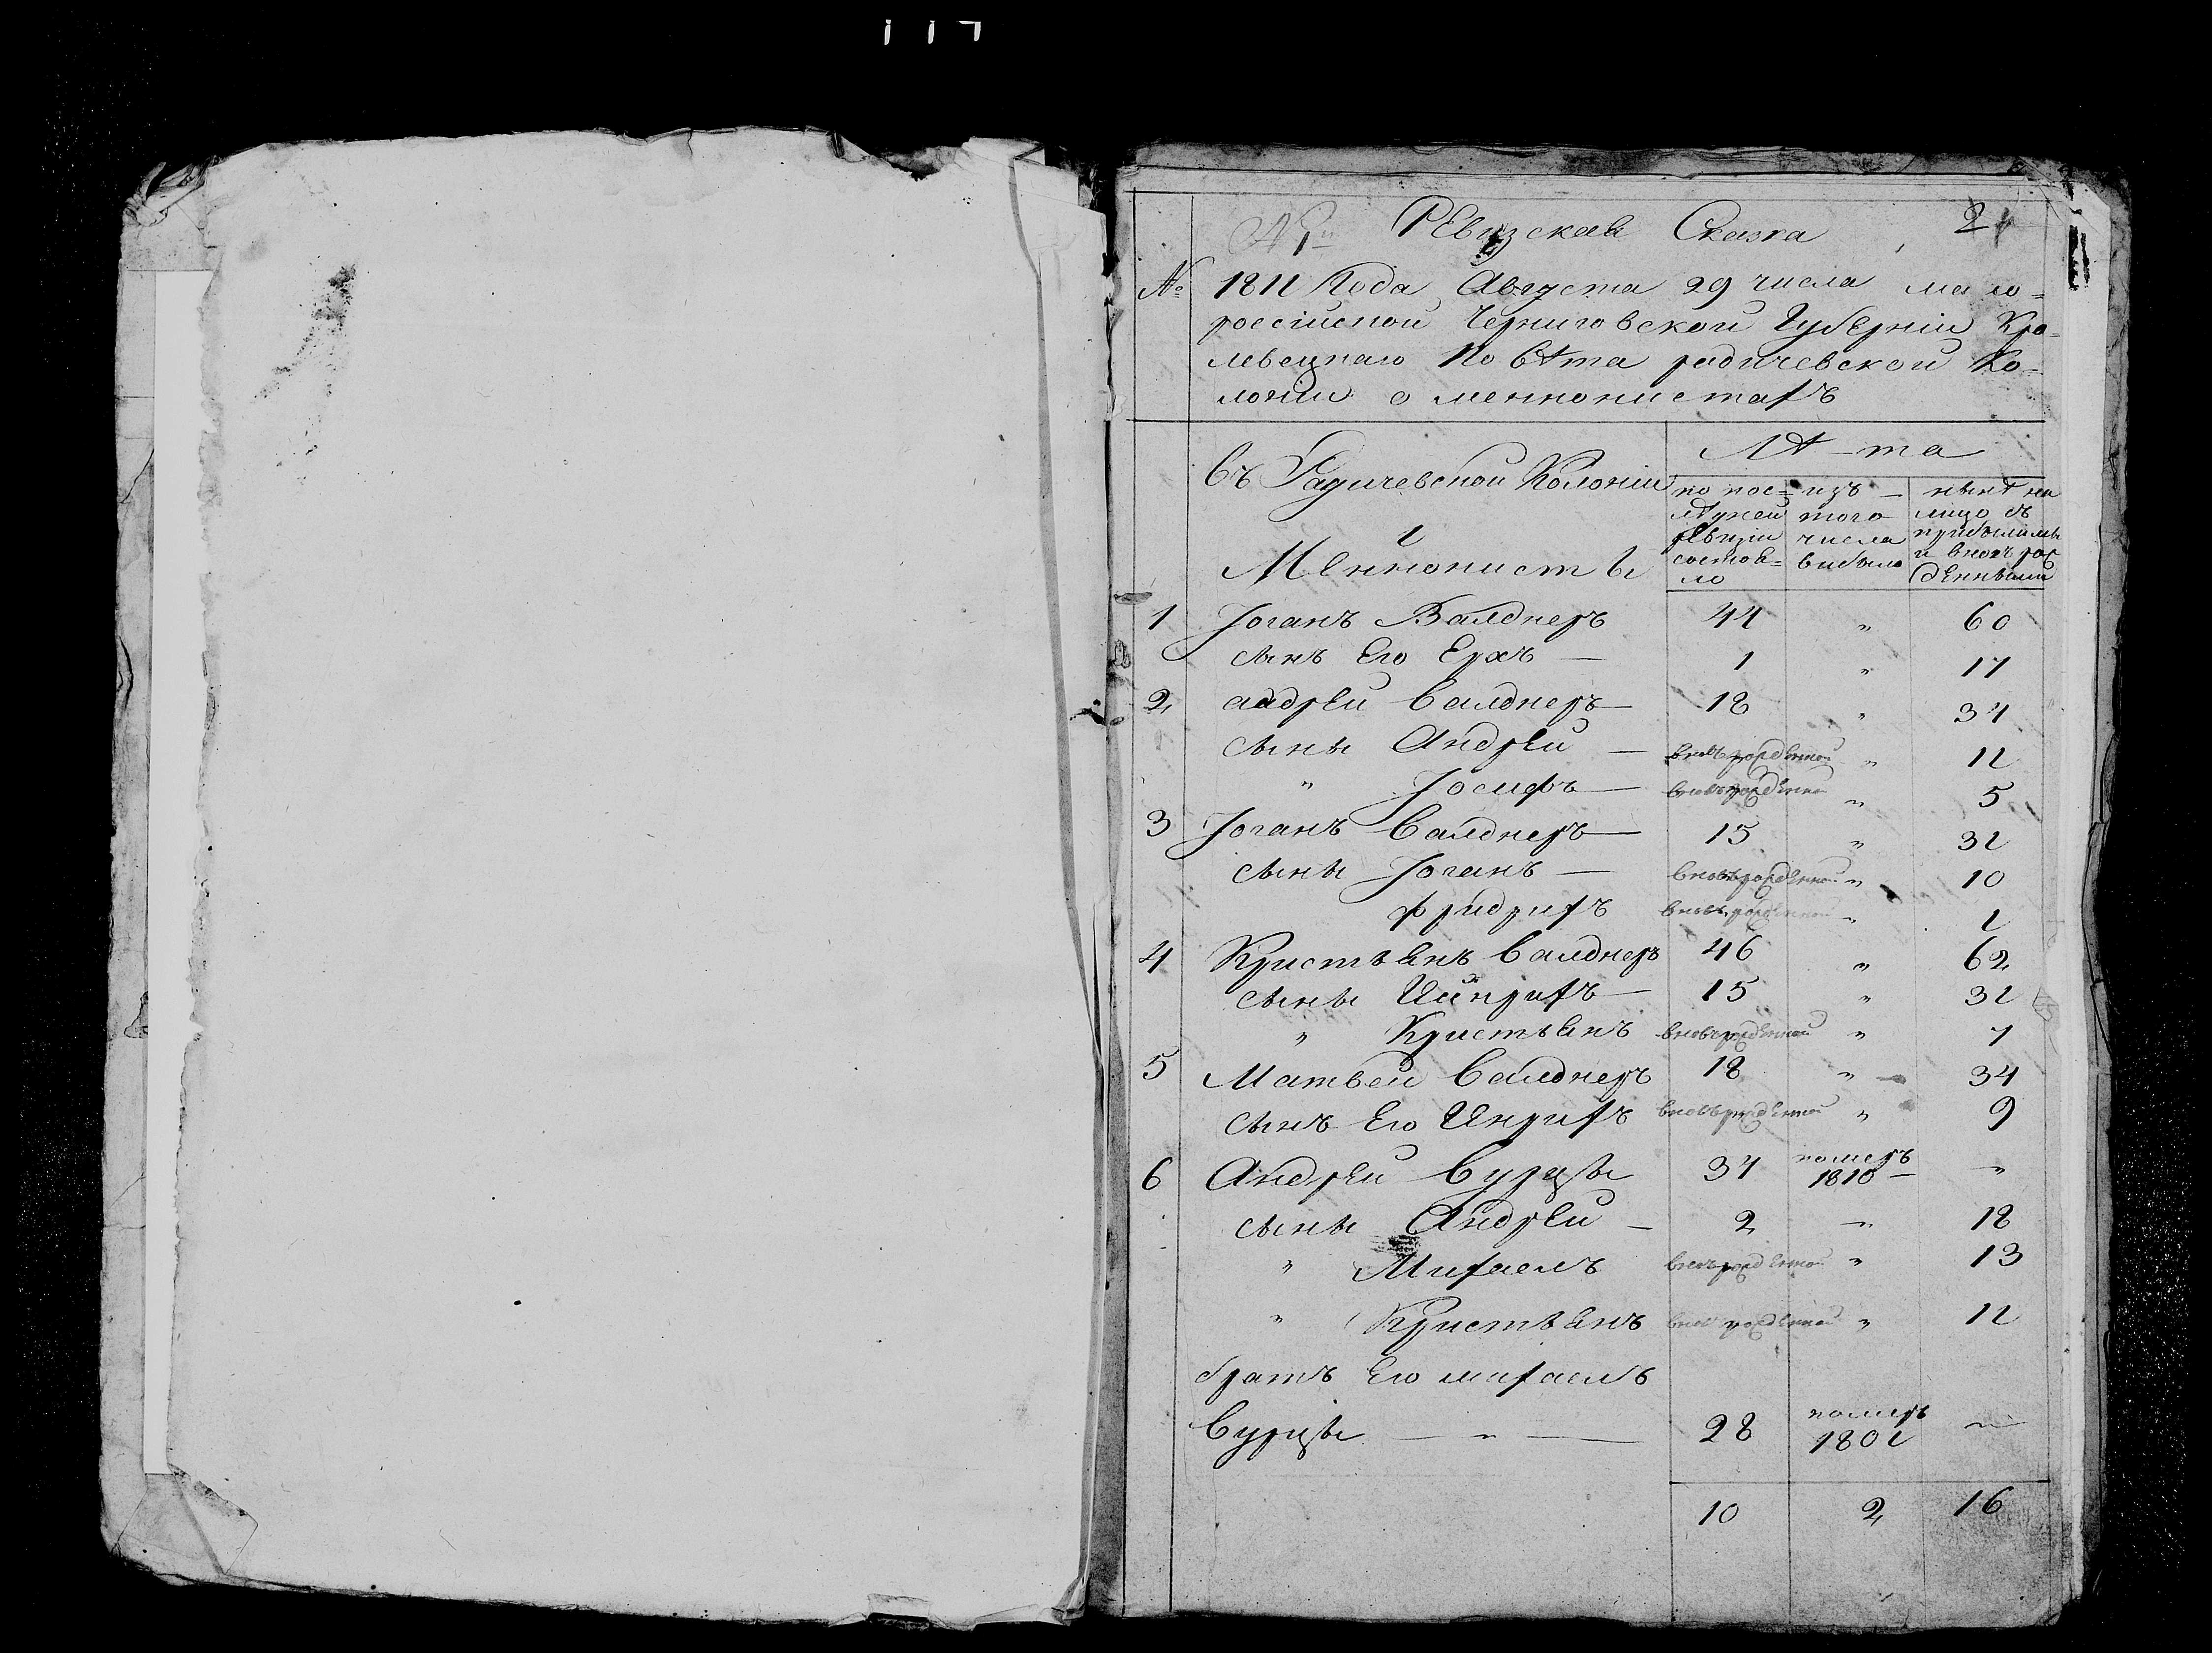 117
Ревизская Сказка 2
№ 1811 Года Августа 29 числа мало-
россійской Черниговской Губерніи Кро-
левецкаго Повѣта радичевской Ко-
лоніи о меннонистахъ
Въ Радичевской Колоніи
Меннонисты
Лѣ-та
по пос-лѣдней ревизіи состоя-ло
изъ того числа выбыло
нынѣ на лицо съ прибылыми и вновь рожденными
1 Іоганъ Валднеръ 44 " 60
сынъ Его Ерхъ — 1 " 17
2 андрей Валднеръ — 18 " 34
сыны Андрей — вновьрожденной " 11
" Іосифъ — вновьрожденной " 5
3 Іоганъ Валднеръ — 15 " 31
сыны Іоганъ — вновьрожденной " 10
фридрихъ вновьрожденной " 1
4 Кристьянъ Валднеръ 46 " 62
сыны Ийнрихъ — 15 " 31
" Кристьянъ вновьрожденной " 7
5 Матвей Валднеръ 18 " 34
сынъ Его Инрихъ вновьрожденной " 9
6 Андрей Вурцъ 34 померъ 1810 — "
сыны Андрей — 2 " 18
" Михаелъ вновьрожденной " 13
" Кристьянъ вновьрожденной " 11
братъ Его михаелъ
Вурцъ — " — 28 померъ 1801 "
10 2 16